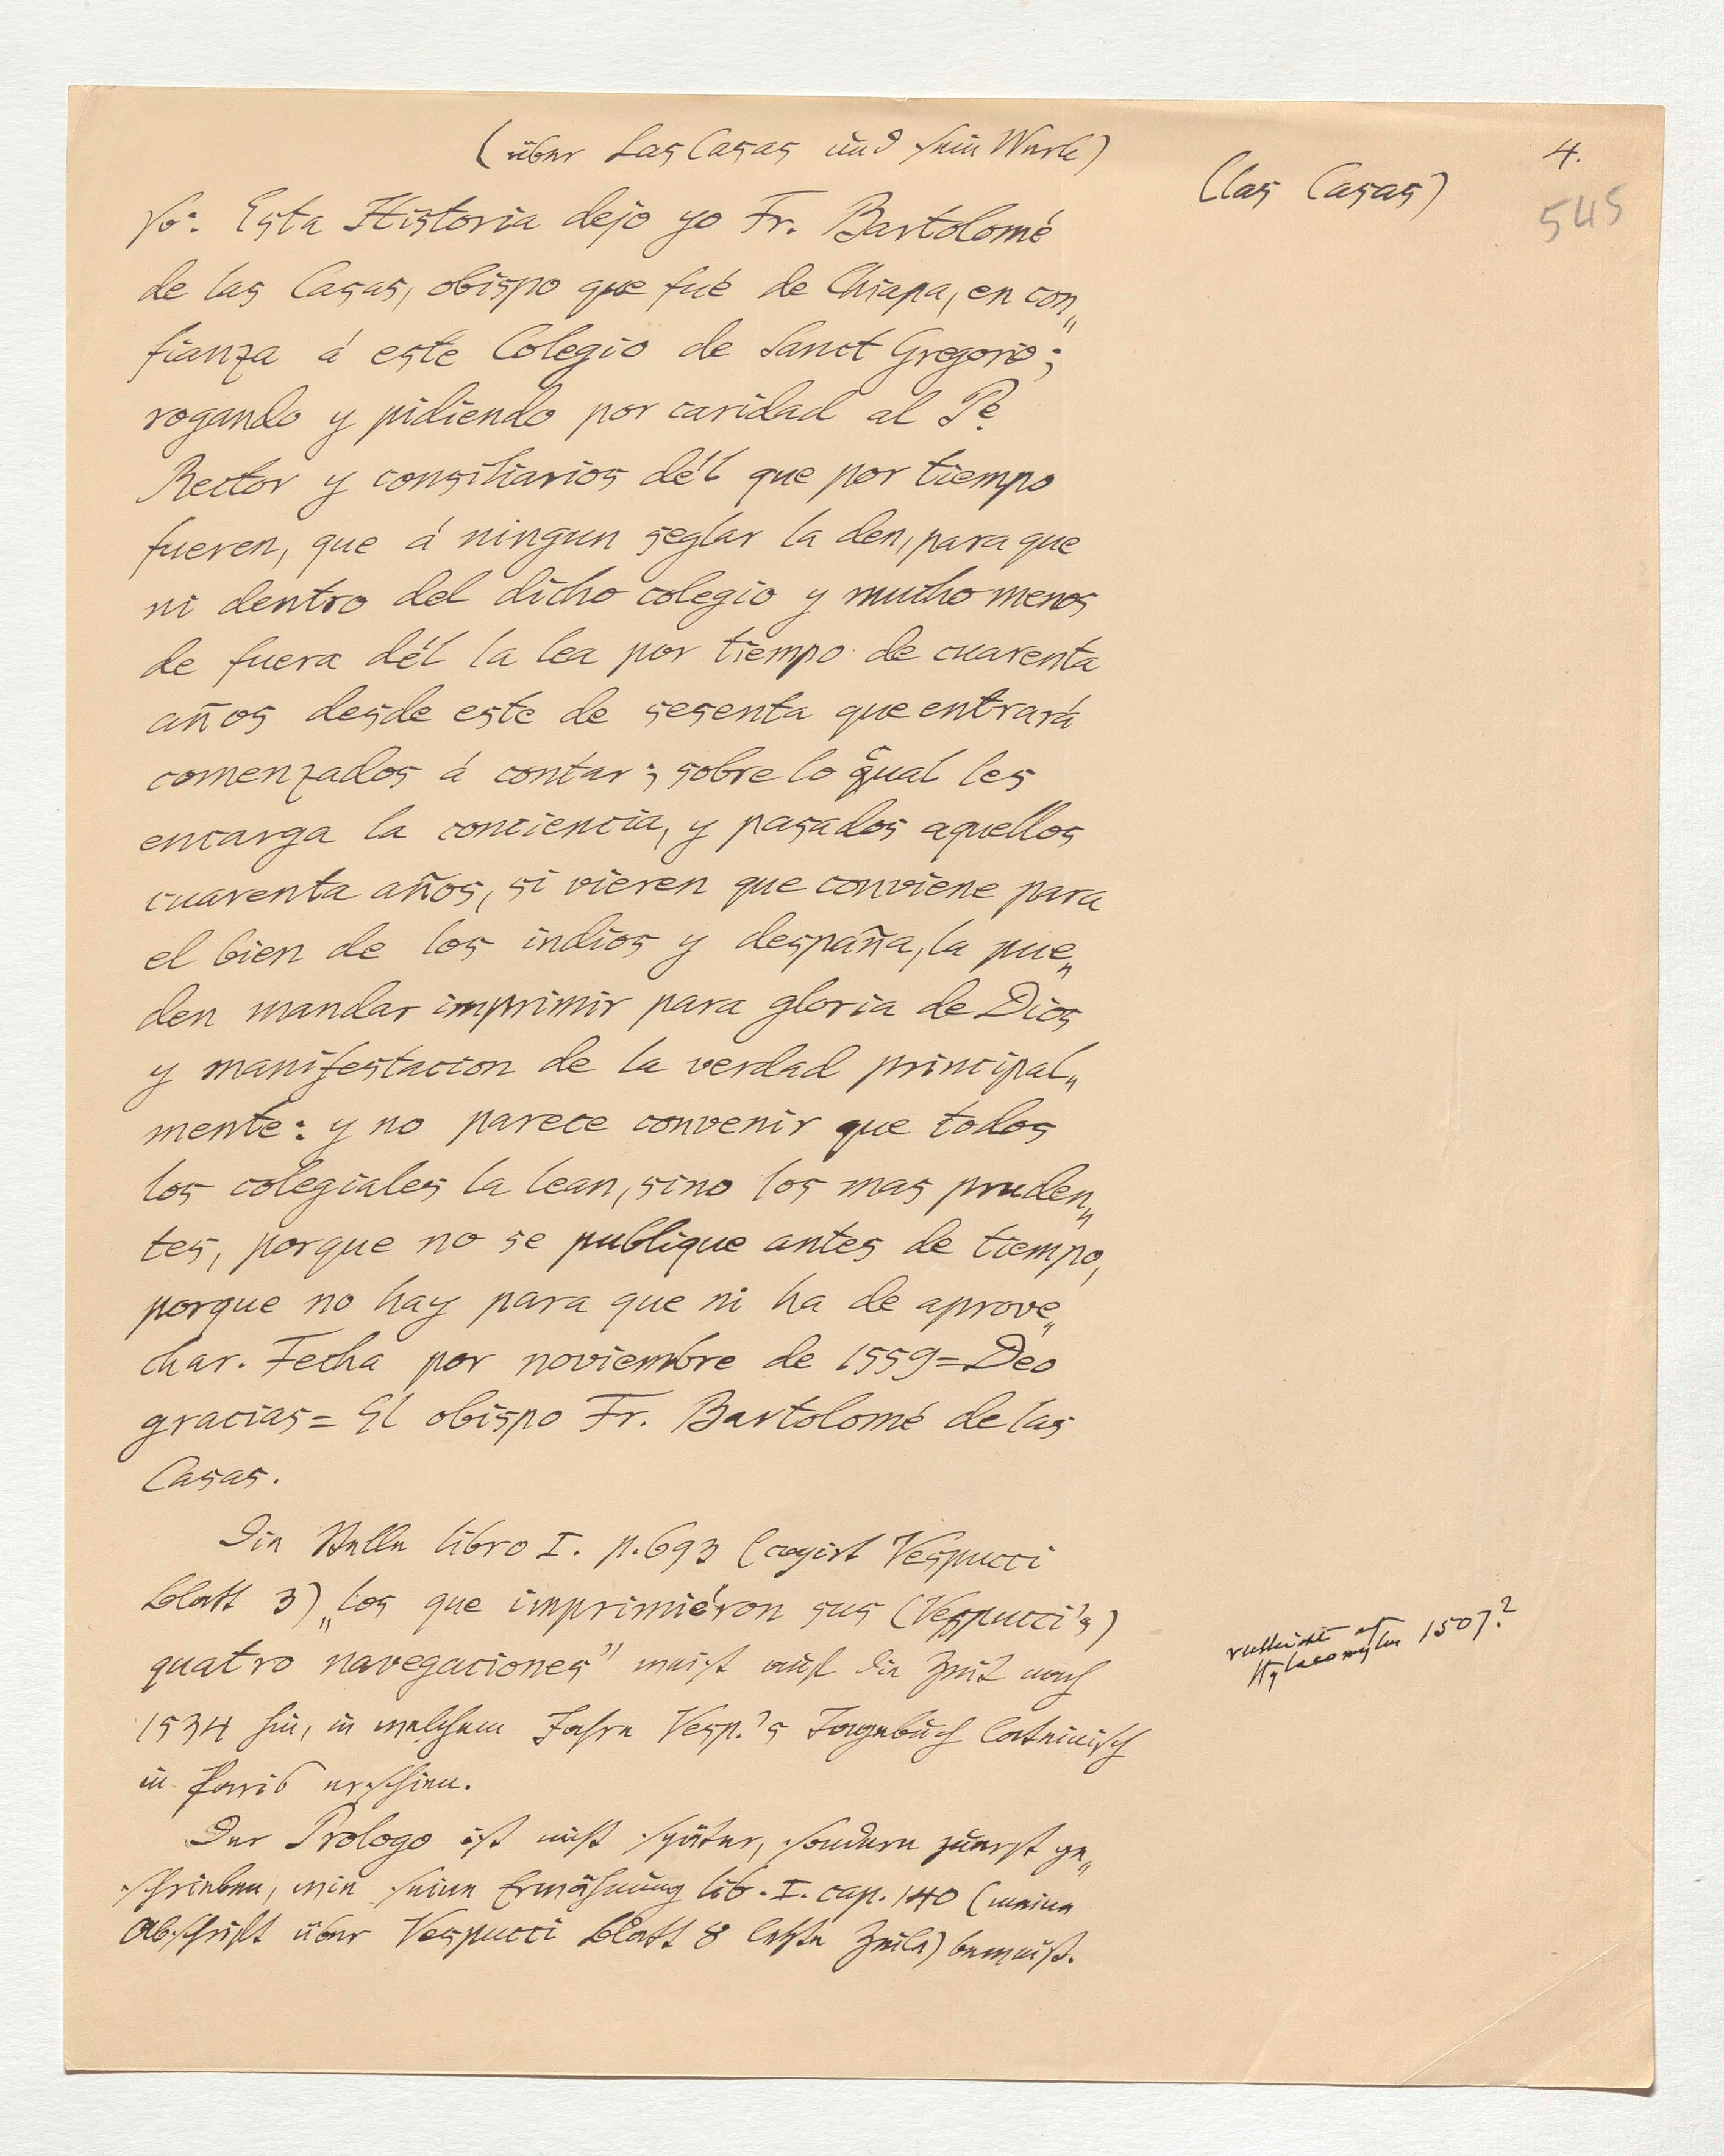 (über Las Casas und sein Werk)
4.
(las Casas)
545
so: Esta Historia dejo yo Fr. Bartolomé
de las Casas, obispo que fué de Chiapa, en con„
fianza á este Colegio de Sanct Gregorio;
rogando y pidiendo por caridad al Pe.
Rector y consiliarios dél que por tiempo
fueren, que á ningun seglar la den, para que
ni dentro del dicho colegio y mucho menos
de fuera dél la lea por tiempo de cuarenta
años desde este de sesenta que entrará
comenzados á contar; sobre lo qual les
encarga la conciencia, y pasados aquellos
cuarenta años, si vieren que conviene para
el bien de los indios y despaña, la pue„
den mandar imprimir para gloria de Dios
y manifestacion de la verdad principal„
mente: y no parece convenir que todos
los colegiales la lean, sino los mas pruden„
tes, porque no se publique antes de tiempo,
porque no hay para que ni ha de aprove„
char. Fecha por noviembre de 1559=Deo
gracias= El obispo Fr. Bartolomé de las
Casas.
Die Stelle libro I. p. 693 (copirt Vespucci
Blatt 3) „los que imprimiéron sus (Vespucci's)
quatro navegaciones" weist auf die Zeit nach
1534 hin, in welchem Jahre Vesp.'s Tagebuch lateinisch
in Paris erschien.
vielleicht auf
Hylacomylus 1507?
Der Prologo ist nicht später, sondern zuerst ge„
schrieben, wie seine Erwähnung lib. I. cap. 140 (meine
Abschrift über Vespucci Blatt 8 letzte Zeile) beweist.